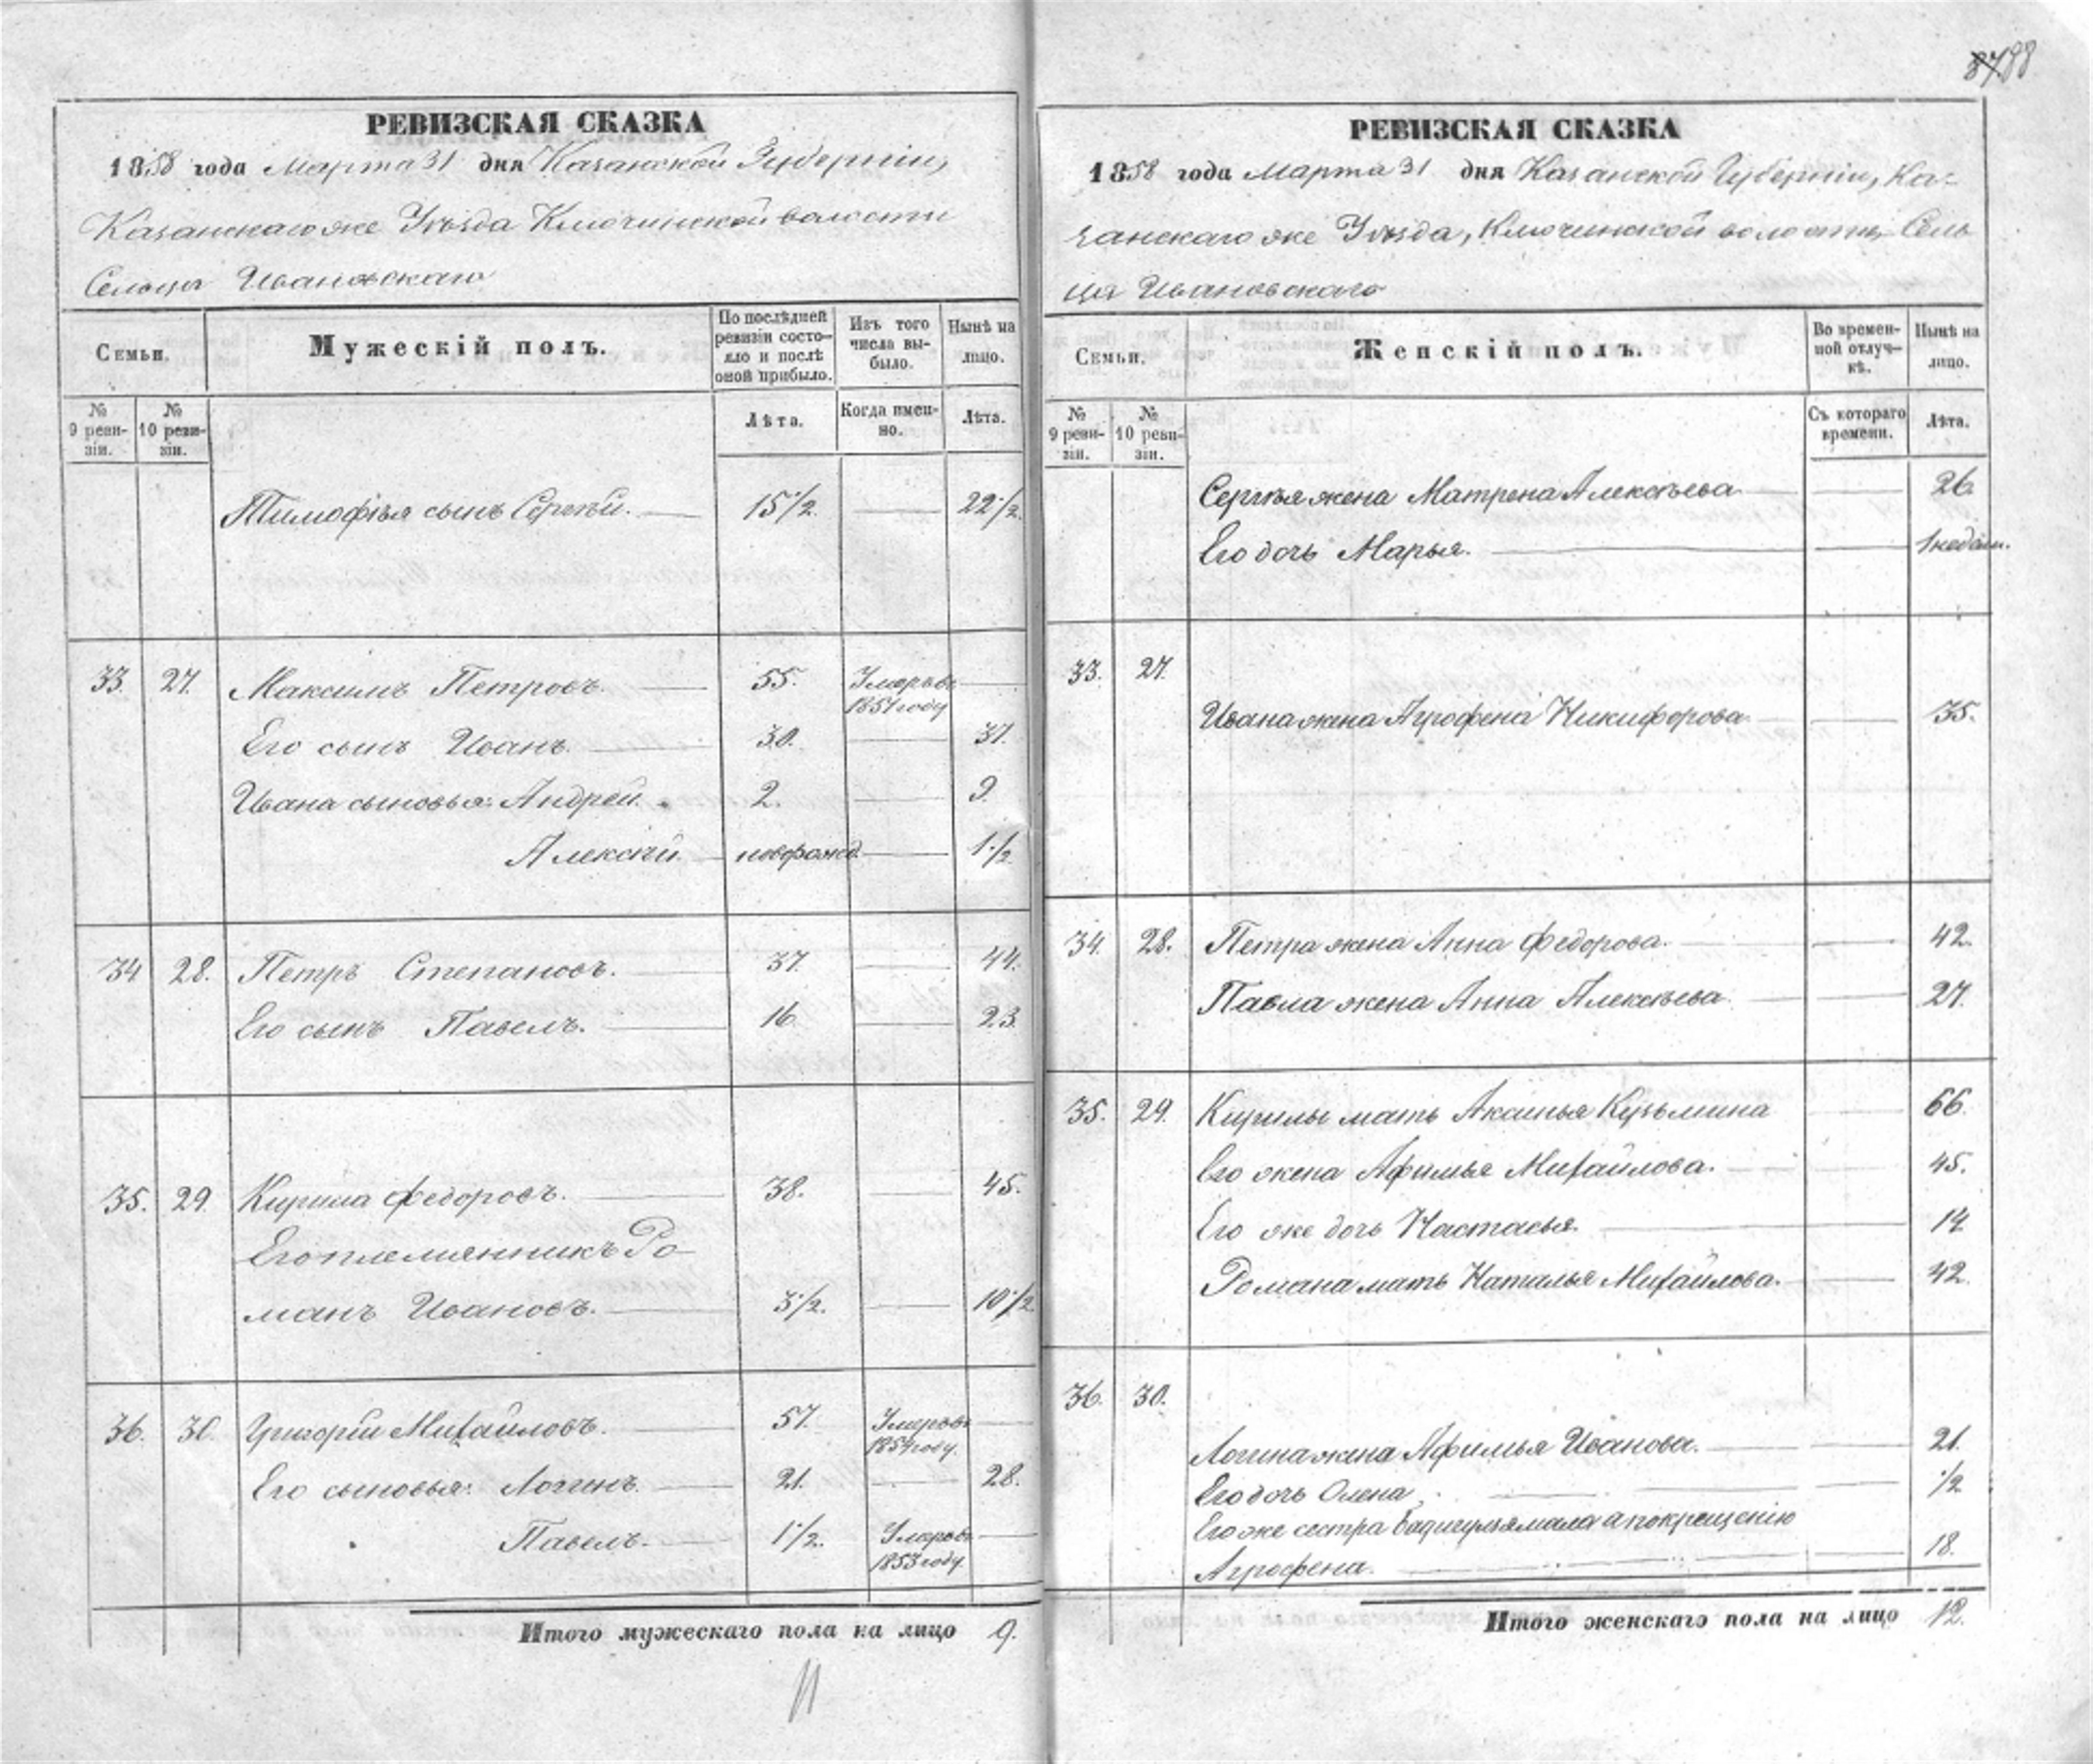 87 88
РЕВИЗСКАЯ СКАЗКА
1858 года Марта 31 дня Казанской Губерніи,
Казанскаго же Уѣзда Ключинской волости
Сельца Ивановскаго
Семьи.
Мужескій полъ.
По послѣдней ревизіи состояло и послѣ оной прибыло.
Изъ того числа выбыло.
Нынѣ на лицо.
№ 9 ревизіи.
№ 10 ревизіи.
Лѣта.
Когда именно.
Лѣта.
Тимофѣя сынъ Сергѣй. 15 1/2 22 1/2
33. 27. Максимъ Петровъ. 55. Умеръ въ 1851 году
Его сынъ Иванъ. 30. 37.
Ивана сыновья: Андрей. 2. 9.
Алексѣй новорожд. 1 1/2
34 28. Петръ Степановъ. 37. 44.
Его сынъ Павелъ. 16 23.
35. 29. Кирила Федоровъ. 38. 45.
Его племянникъ Ро-
манъ Ивановъ. 3 1/2. 10 1/2
36. 30. Григорій Михайловъ. 57. Умеръ въ 1854 году.
Его сыновья: Логинъ. 21. 28.
Павелъ. 1 1/2. Умеръ въ 1853 году.
Итого мужескаго пола на лицо 9.
РЕВИЗСКАЯ СКАЗКА
1858 года Марта 31 дня Казанской Губерніи, Ка-
занскаго же Уѣзда, Ключинской волости, Сель
ца Ивановскаго
Семьи.
Женскій полъ.
Во временной отлучкѣ.
Нынѣ на лицо.
№ 9 ревизіи.
№ 10 ревизіи.
Съ котораго времени.
Лѣта.
Сергѣя жена Матрена Алексѣева 26.
Его дочь Марья. 1 недѣли.
33. 27.
Ивана жена Агрофена Никифорова 35.
34. 28. Петра жена Анна Федорова. 42.
Павла жена Анна Алексѣева 27.
35. 29. Кирилы мать Аксинья Кузьмина 66.
Его жена Афимья Михайлова. 45.
Его же дочь Настасья. 14.
Романа мать Наталья Михайлова. 42.
36. 30.
Логина жена Афимья Иванова. 21.
Его дочь Олена 1/2
Его же сестра Бадигульямала а по крещенію
Агрофена. 18.
Итого женскаго пола на лицо 12.